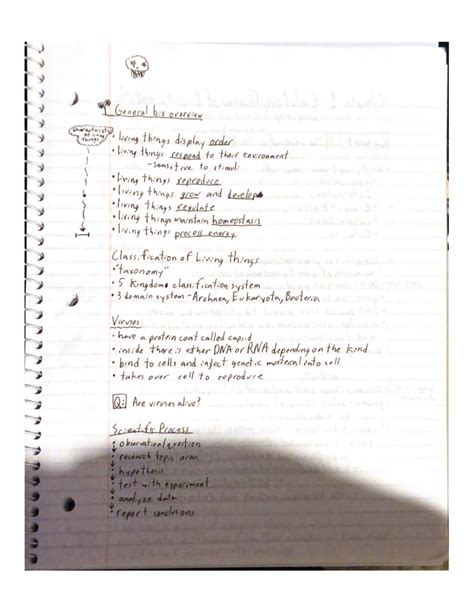 General bio overview
characteristics
of living
things
• living things display order
• living things respond to their environment
-sensitive to stimuli
• living things reproduce
• living things grow and develop
• living things regulate
• living things maintain homeostasis
• living things process energy
Classification of Living things
• "taxonomy"
• 5 Kingdom classification system
• 3 domain system - Archaea, Eukaryota, Bacteria
Viruses
• have a protein coat called capsid
• inside there is either DNA or RNA depending on the kind
• bind to cells and inject genetic material into cell
• takes over cell to reproduce
Q: Are viruses alive?
Scientific Process
• observation/question
• research topic area
• hypothesis
• test with experiment
• analyze data
• report conclusions